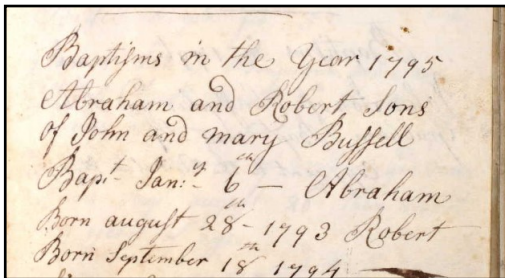 Baptisms in the Year 1795
Abraham and Robert Sons
of John and mary Bussell
Bapt Jan:y 6th — Abraham
Born august 28th - 1793 Robert
Born September 18th 1794